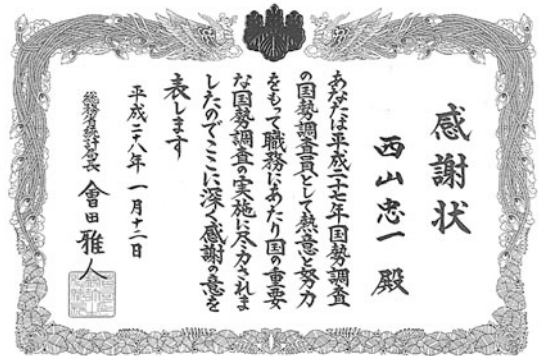 感謝状
西山忠一 殿
あなたは平成二十七年国勢調査
の国勢調査員として熱意と努力
をもって職務にあたり国の重要
な国勢調査の実施に尽力されま
したのでここに深く感謝の意を
表します
平成二十八年 一月十二日
総務省統計局長 會田雅人